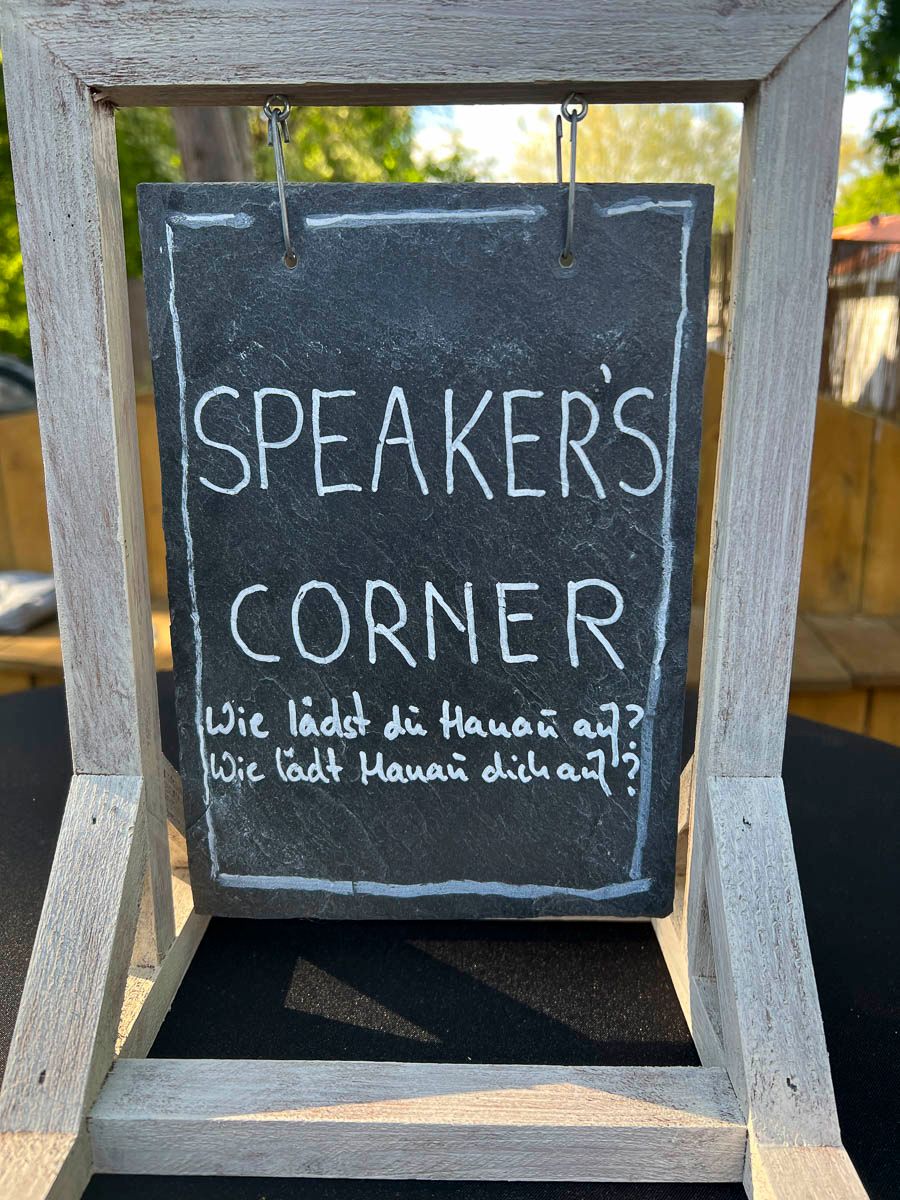 SPEAKER'S
CORNER
Wie lädst du Hanau auf?
Wie lädt Hanau dich auf?